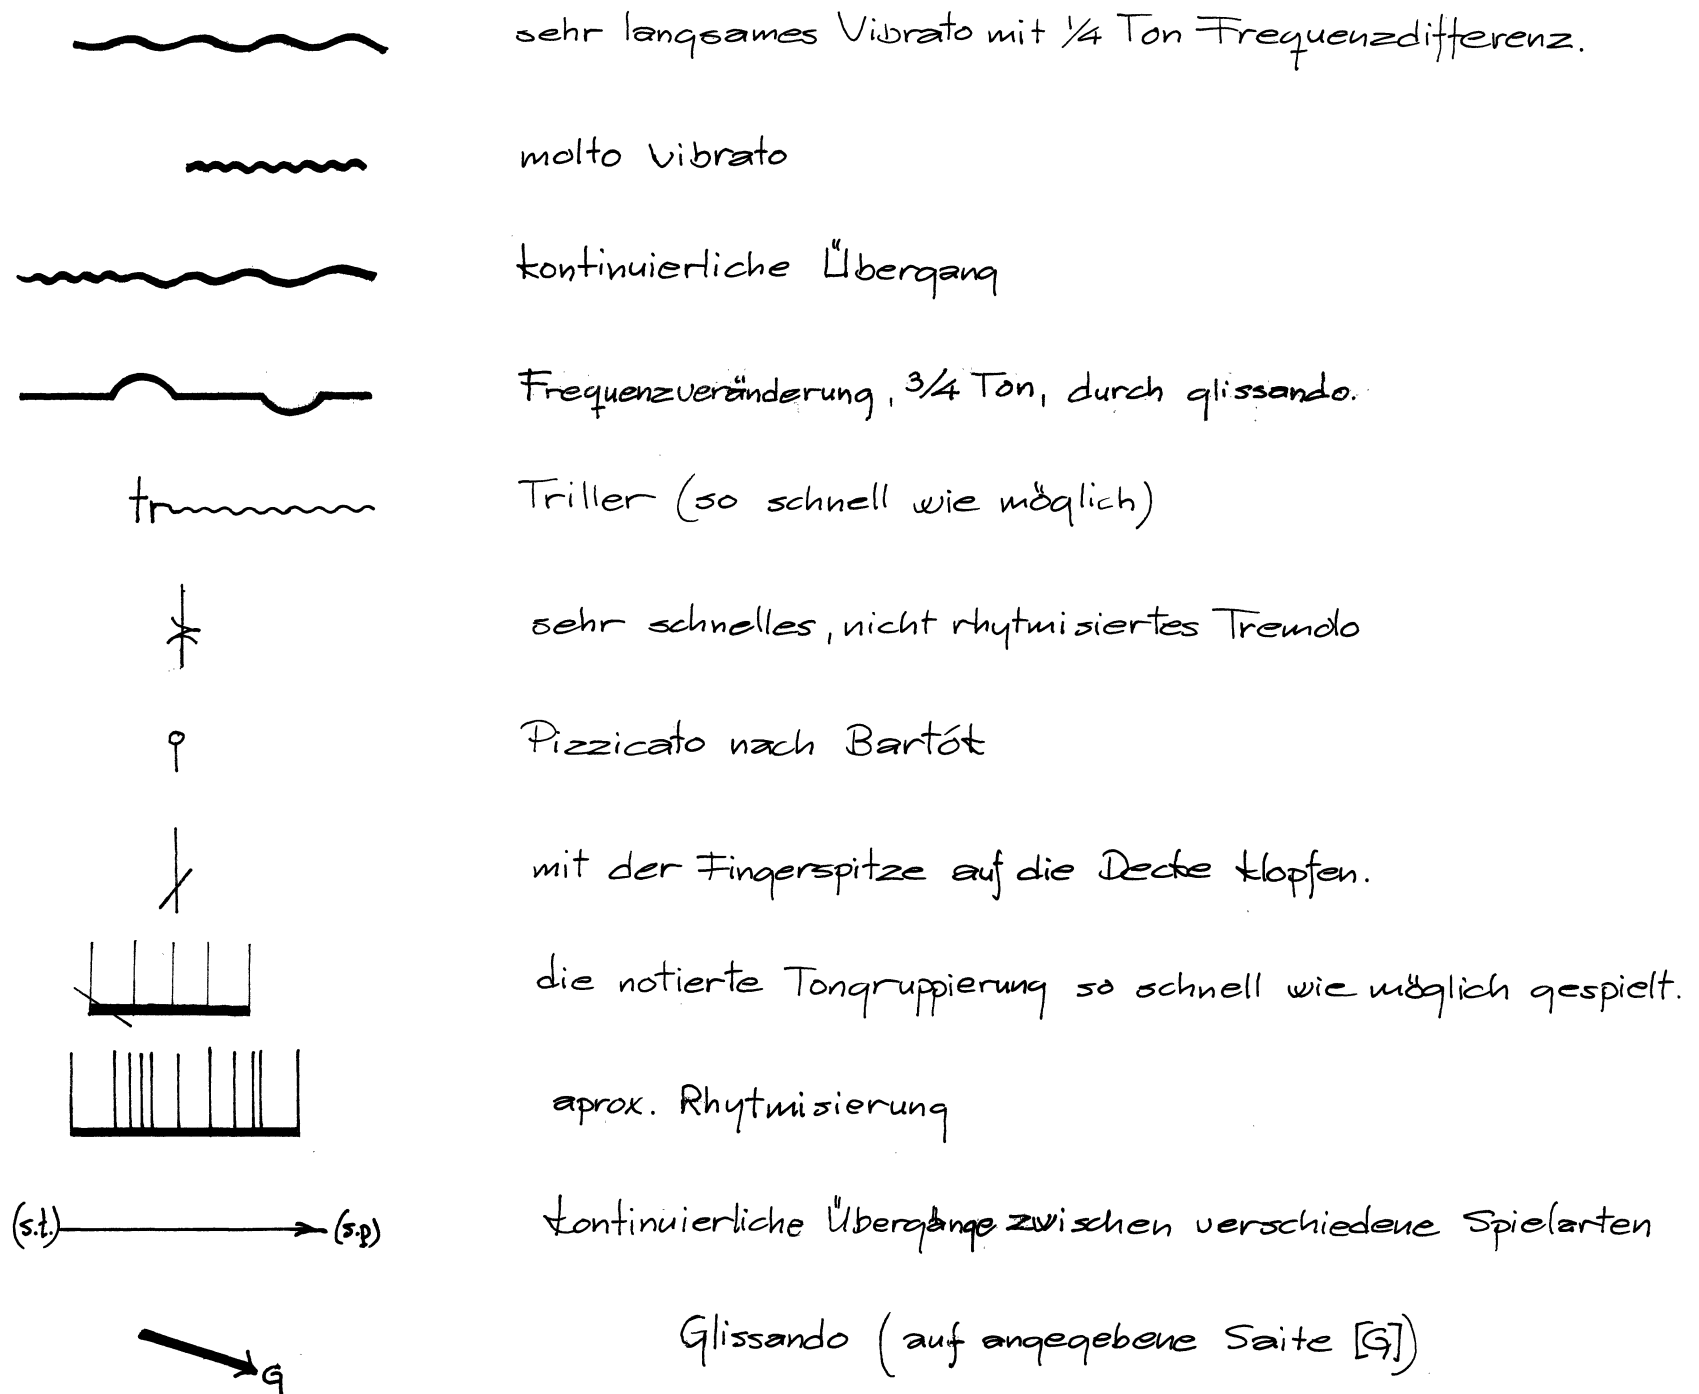 sehr langsames Vibrato mit 1/4 Ton Frequenzdifferenz.
molto vibrato
kontinuierliche Übergang
Frequenzveränderung, 3/4 Ton, durch glissando.
tr Triller (so schnell wie möglich)
sehr schnelles, nicht rhytmisiertes Tremolo
Pizzicato nach Bartók
mit der Fingerspitze auf die Decke klopfen.
die notierte Tongruppierung so schnell wie möglich gespielt.
aprox. Rhytmisierung
(s.t.) (s.p) kontinuierliche Übergänge zwischen verschiedene Spielarten
G Glissando (auf angegebene Saite [G])